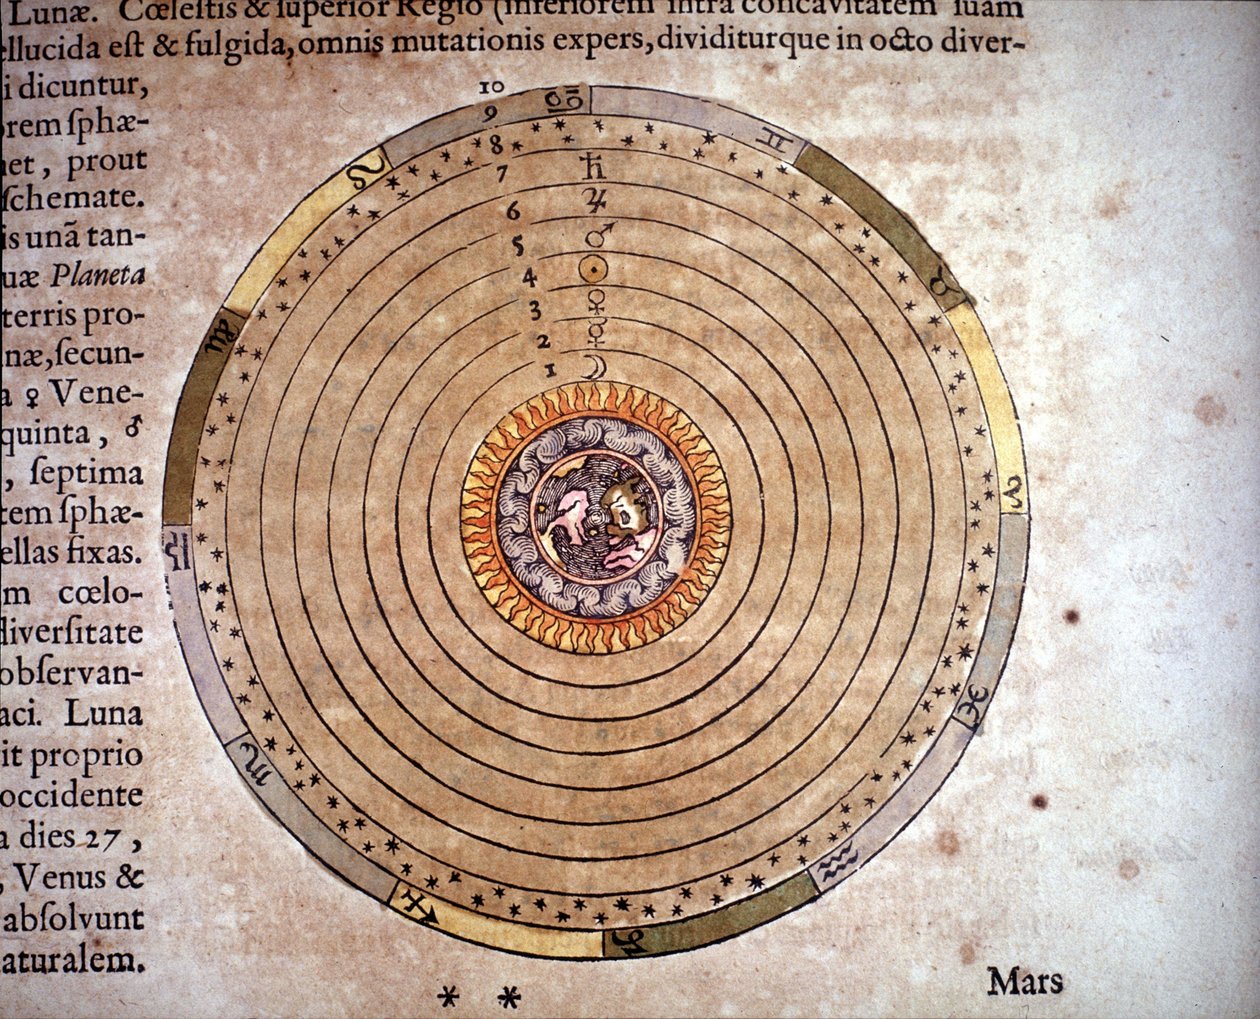 Lunæ. Cœleſtis & ſuperior Regio (inferiorem intra concavitatem ſuam
ellucida eſt & fulgida, omnis mutationis expers, dividiturque in octo diver-
i dicuntur,
rem ſphæ-
et, prout
ſchemate.
is unã tan-
uæ Planeta
terris pro-
næ, ſecun-
a ♀ Vene-
quinta, ♂
, ſeptima
tem ſphæ-
ellas fixas.
m cœlo-
diverſitate
obſervan-
aci. Luna
it proprio
occidente
a dies 27,
, Venus &
abſolvunt
aturalem.
10
9
8
7
6
5
4
3
2
1
♋
♊
♉
♈
♓
♒
♑
♐
♏
♎
♍
♌
♄
♃
♂
☉
♀
☿
☽
* *
Mars